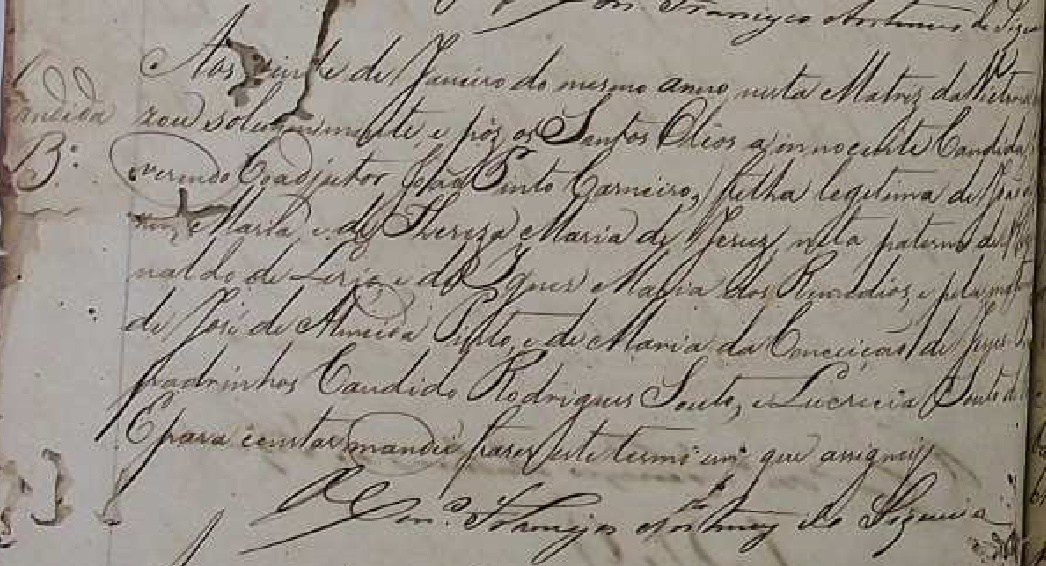 Con.º Francisco Antunes de Siqu
Candida
B.
Aos vinte de Janeiro do mesmo anno nesta Matriz da Victoria
zou solemnimente, e pôz os Santos Oleos a innocente Candida
verendo Coadjutor João Pinto Carneiro, filha legitima de
Maria, e de Thereza Maria de Jesus, neta paterna de
naldo de Leria e de Ignes Maria dos Remedios, e pela
de José de Almeida Pinto, e de Maria da Conceição de Jesus
padrinhos Candido Rodrigues Souto, e Lucrecia Souto
E para constar mandei fazer este termo em que assignei
O Con.º Francisco Antunes de Siqueira